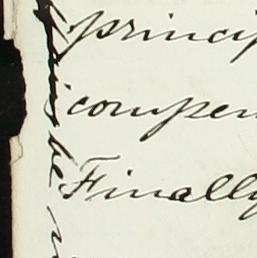 princip
compen
Finally
be